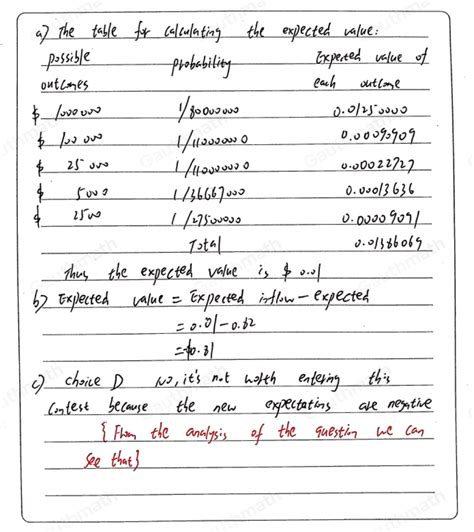 a) The table for calculating the expected value:
possible probability Expected value of
outcomes each outcome
$ 1000000 1/80000000 0.01250000
$ 100000 1/11000000 0.00090909
$ 25000 1/11000000 0.00022727
$ 5000 1/36667000 0.00013636
$ 2500 1/27500000 0.00009091
Total 0.01386069
Thus the expected value is $ 0.01
b) Expected value = Expected inflow - expected
= 0.01 - 0.82
c) choice D No, it's not worth entering this
contest because the new expectations are negative
{ From the analysis of the question we can
see that}
Gauthmath